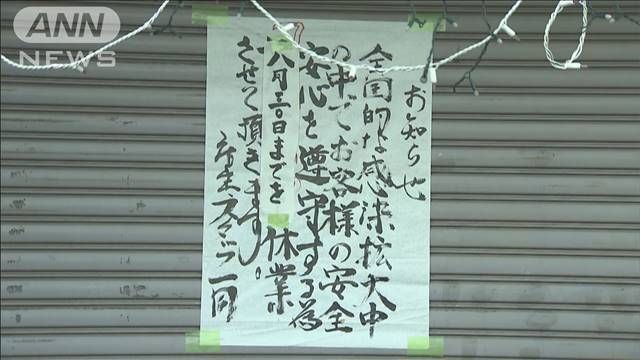 ANN
NEWS
お知らせ
全国的な感染拡大中
の中でお客様の安全
安心を遵守する為
八月 日までを 休業
させて頂きます。
店主スタッフ一同